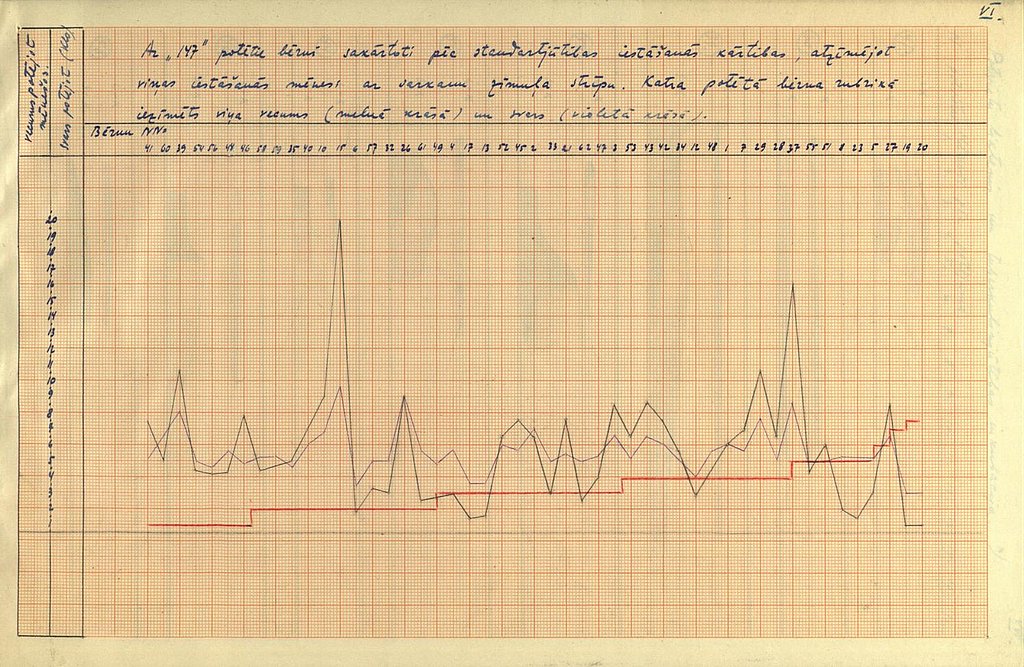 VI.
vecums potējot mēnešos.
svars potējot (kilo)
Ar „147" potētie bērni sakārtoti pēc standartjūtības iestāšanās kārtības, atzīmējot
viņas iestāšanās mēnesi ar sarkanu zīmuļa strīpu. Katra potētā bērna rubrikā
iezīmēts viņa vecums (melnā krāsā) un svars (violetā krāsā).
Bērnu NNo
41 60 39 54 56 48 46 58 59 35 40 10 15 6 57 32 26 61 49 4 17 13 52 45 2 33 21 62 47 3 53 43 42 34 12 48 1 7 29 28 37 55 51 8 23 5 27 19 20
20
19
18
17
16
15
14
13
12
11
10
9
8
7
6
5
4
3
2
1